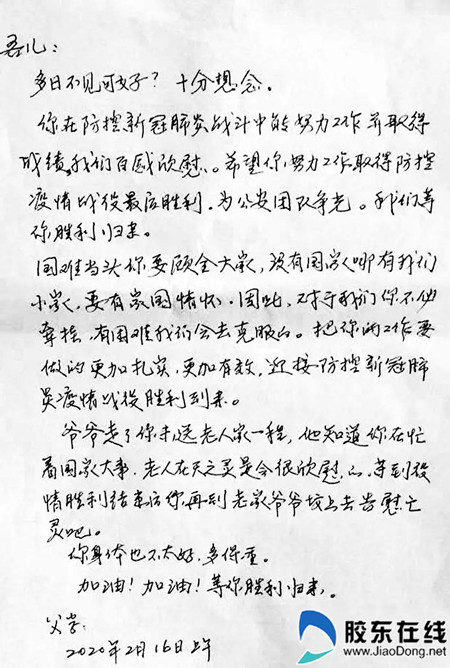 吾儿：
多日不见可好？十分想念。
你在防控新冠肺炎战斗中能努力工作并取得
成绩，我们百感欣慰。希望你努力工作取得防控
疫情战役最后胜利，为公安团队争光。我们等
你胜利归来。
国难当头你要顾全大家，没有国家哪有我们
小家，要有家国情怀。因此，对于我们你不必
牵挂，有困难我们会去克服。把你的工作要
做的更加扎实，更加有效，迎接防控新冠肺
炎疫情战役胜利到来。
爷爷走了你未送老人家一程，他知道你在忙
着国家大事，老人在天之灵是会很欣慰。等到疫
情胜利结束后你再到老家爷爷坟上去告慰亡
灵吧。
你身体也不太好，多保重。
加油！加油！等你胜利归来。
父字：
2020年2月16日上午
胶东在线
www.JiaoDong.net